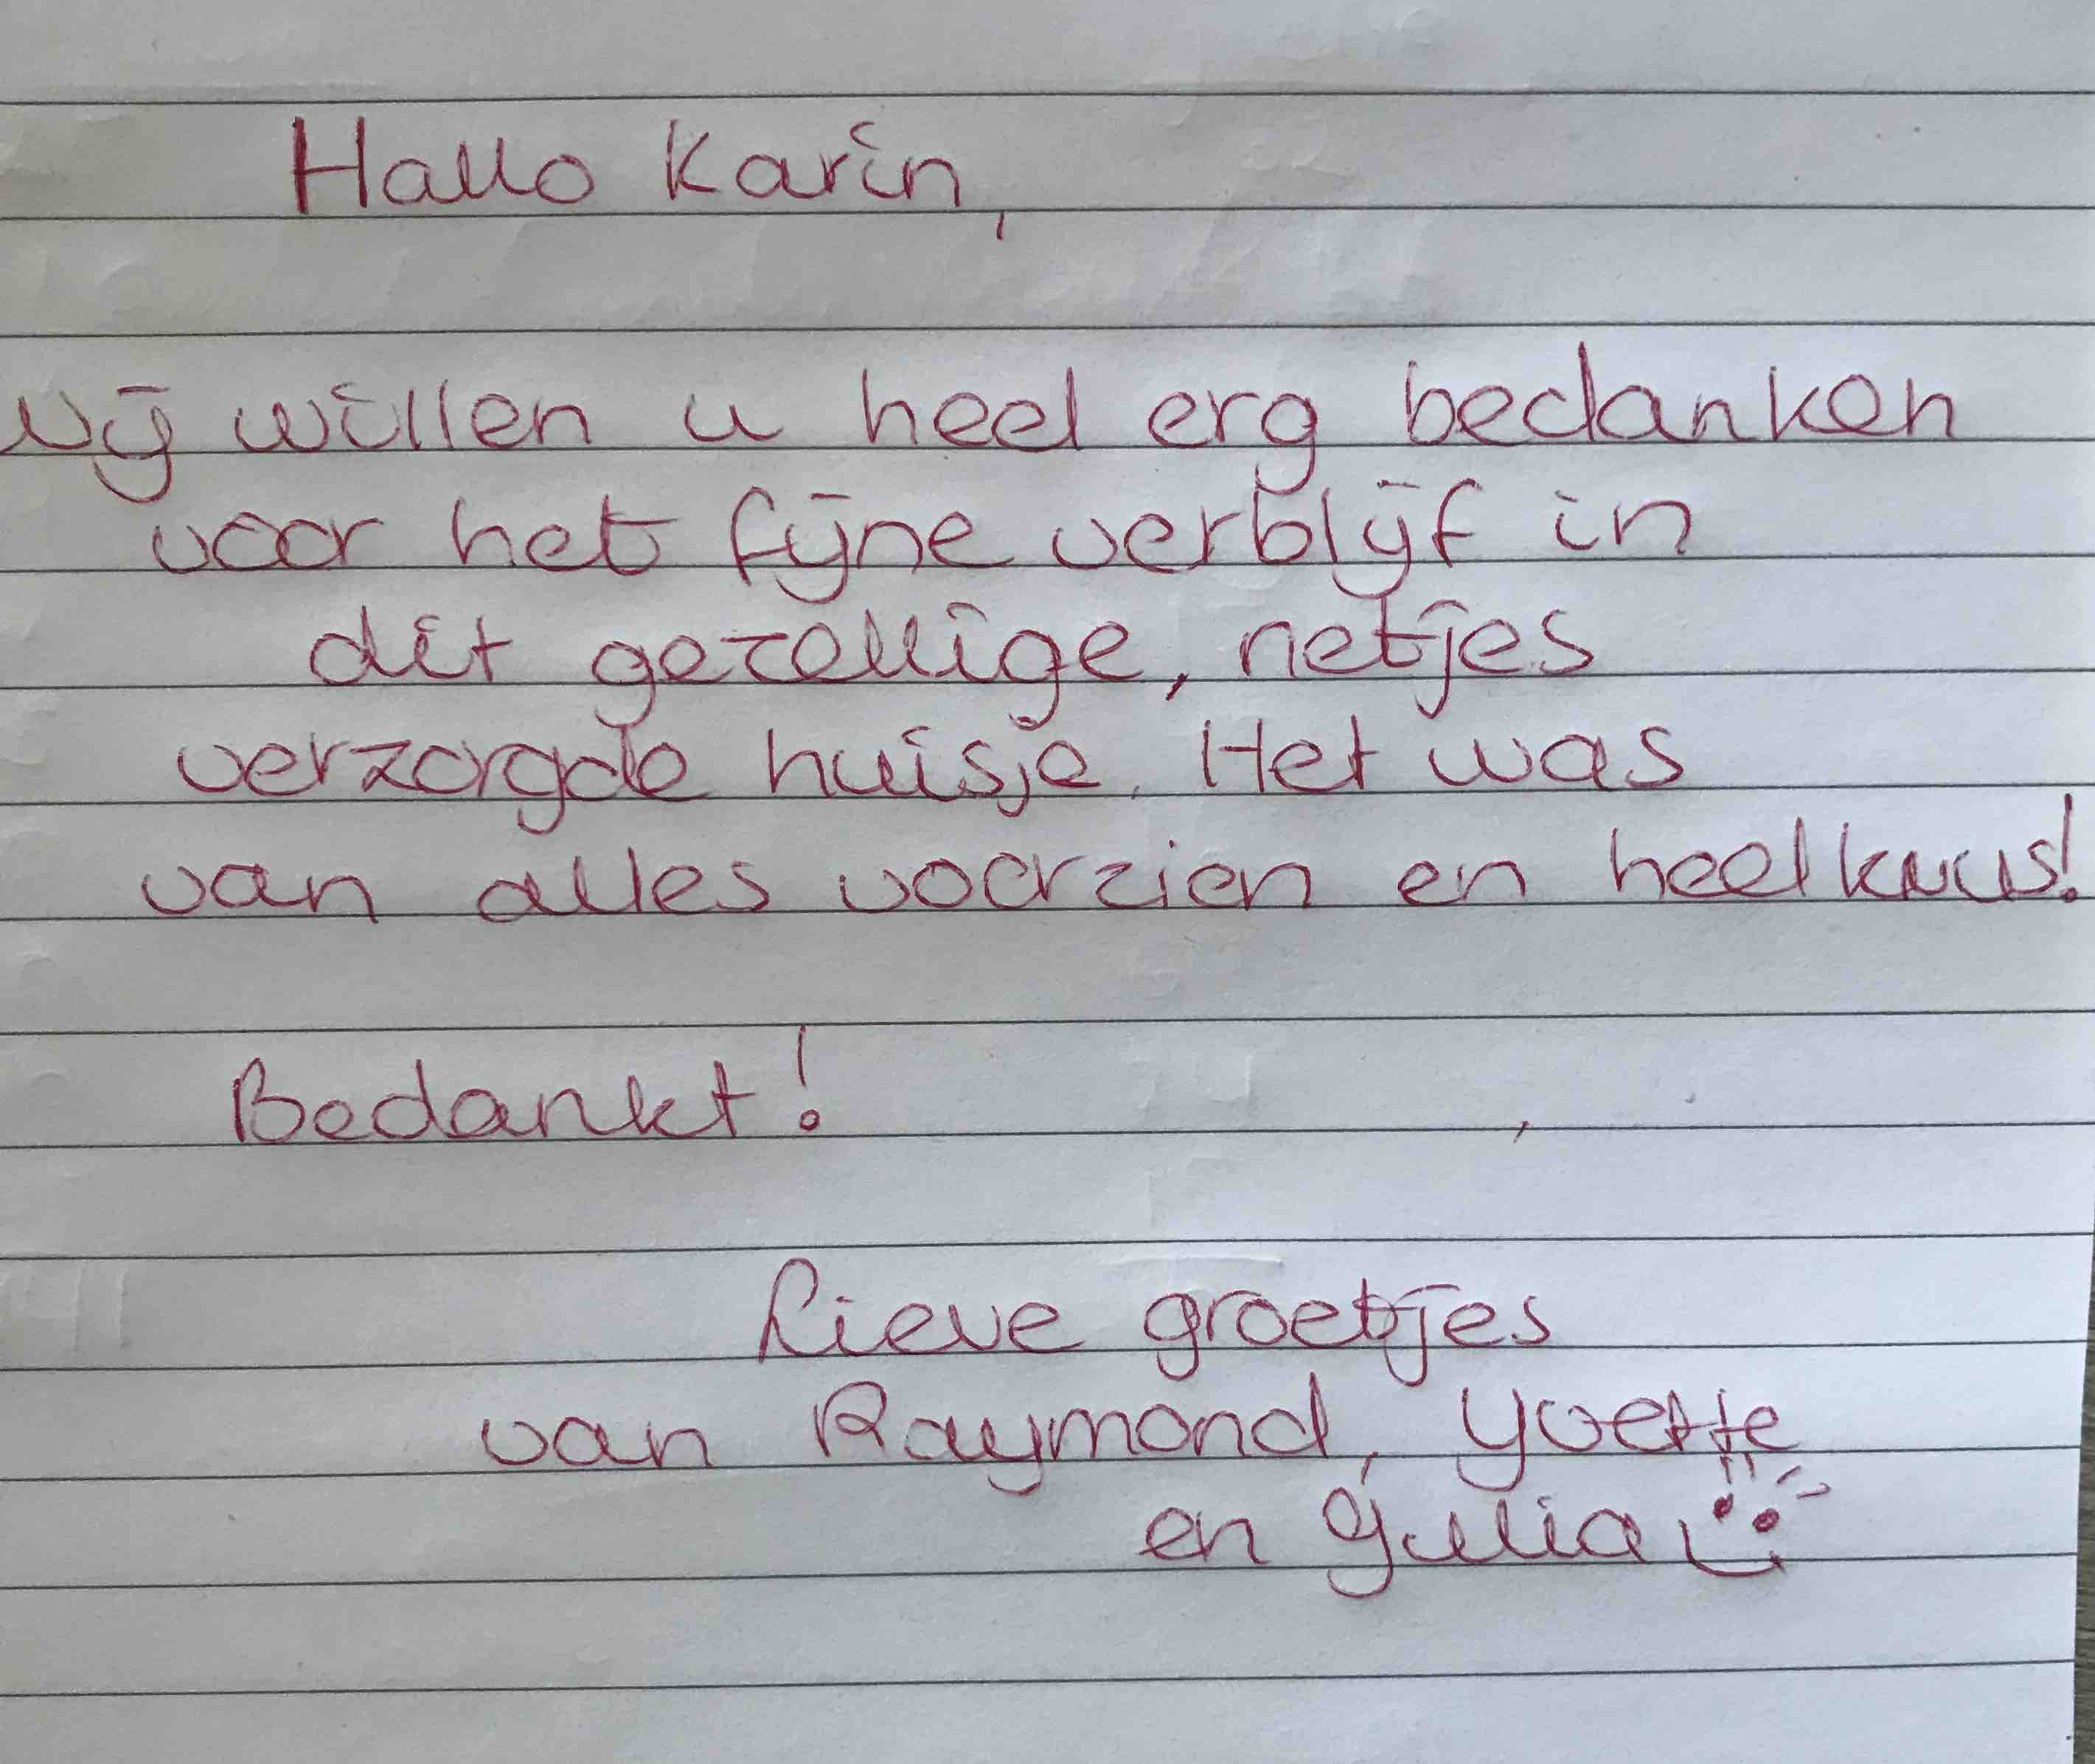 Hallo Karin,
Wij willen u heel erg bedanken
voor het fijne verblijf in
dit gezellige, netjes
verzorgde huisje. Het was
van alles voorzien en heel knus!
Bedankt!
Lieve groetjes
van Raymond, Yvette
en Julia